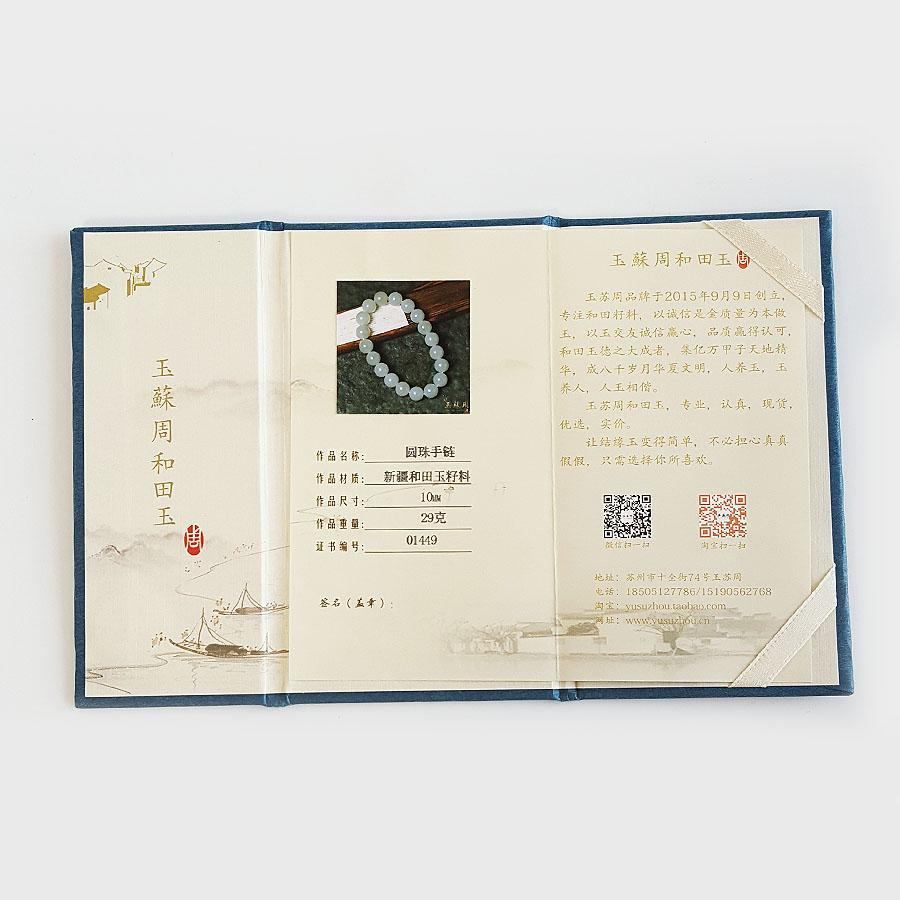 玉蘇周和田玉
周
作品名称：圆珠手链
作品材质：新疆和田玉籽料
作品尺寸：10MM
作品重量：29克
证书编号：01449
签名（盖章）：
玉蘇周和田玉周
玉苏周品牌于2015年9月9日创立，
专注和田籽料，以诚信是金质量为本做
玉，以玉交友诚信赢心，品质赢得认可，
和田玉德之大成者，集亿万甲子天地精
华，成八千岁月华夏文明，人养玉，玉
养人，人玉相偕。
玉苏周和田玉，专业，认真，现货，
优选，实价。
让结缘玉变得简单，不必担心真真
假假，只需选择你所喜欢。
微信扫一扫
淘宝扫一扫
地址：苏州市十全街74号玉苏周
电话：18505127786/15190562768
淘宝：yusuzhou.taobao.com
网址：www.yusuzhou.cn